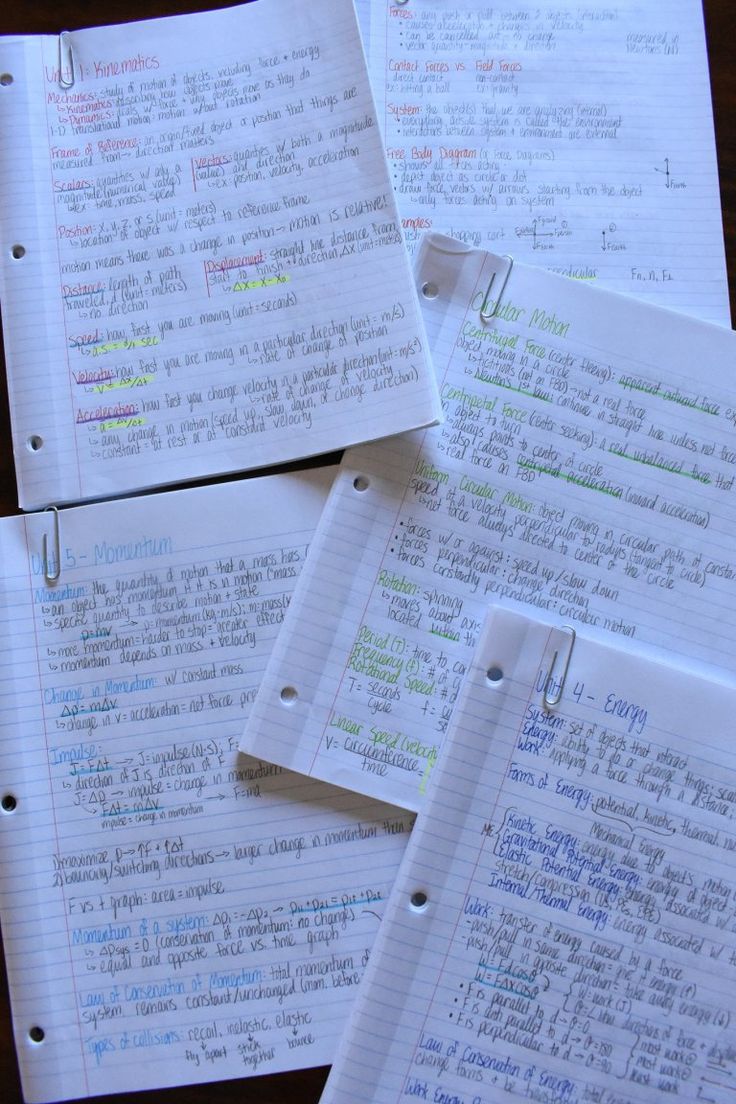 Unit 1: Kinematics
Mechanics: study of motion of objects, including force + energy
↳ Kinematics: describing how objects move
↳ Dynamics: deals w/ force + why objects move as they do
1-D translational motion: motion w/out rotation
Frame of Reference: an origin/fixed object or position that things are
measured from → direction matters
Scalars: quantities w/ only a
magnitude (numerical value)
↳ ex: time, mass, speed
Vectors: quantities w/ both a magnitude
(value) and direction
↳ ex: position, velocity, acceleration
Position: x, y, z, or s (unit = meters)
↳ location of object w/ respect to reference frame
motion means there was a change in position → motion is relative!
Distance: length of path
traveled, d (unit = meters)
↳ no direction
Displacement: straight line distance from
start to finish + direction Δx (unit = meters)
↳ Δx = x - x₀
Speed: how fast you are moving (unit = seconds)
Velocity: how fast you are moving in a particular direction (unit = m/s)
↳ v = Δx/Δt
↳ rate of change of position
Acceleration: how fast you change velocity in a particular direction (unit = m/s²)
↳ a = Δv/Δt
↳ rate of change of velocity
↳ any change in motion (speed up, slow down, or change direction)
↳ constant = at rest or at constant velocity
Forces: any push or pull between 2 objects (interaction)
• causes acceleration + changes in velocity
• can be cancelled out → no change
• vector quantity: magnitude + direction
measured in
Newtons (N)
Contact Forces vs Field Forces
direct contact
non-contact
ex: hitting a ball
ex: gravity
System: the object(s) that we are analyzing (internal)
↳ everything outside system is called the environment
• interactions between system + environment are external
Free Body Diagram (or Force Diagrams)
• shows all forces acting
• depict object as circle or dot
• draw force vectors w/ arrows starting from the object
↳ only forces acting on system
shopping cart
Fn, n, F⊥
Circular Motion
Centrifugal Force (center fleeing): apparent outward force
object moving in a circle
↳ fictitious (not on FBD) → not a real force
↳ Newton's 1st law: continue in straight line unless net force
Centripetal Force (center seeking): a real unbalanced force that
an object to turn
↳ always points to center of circle
↳ also causes centripetal acceleration (inward acceleration)
↳ real force on FBD
Uniform Circular Motion: object moving in circular path of
speed at a velocity perpendicular to radius (tangent to circle)
↳ net force always directed to center of the circle
• forces w/ or against: speed up/slow down
• forces perpendicular: change direction
• forces constantly perpendicular: circular motion
Rotation: spinning
↳ moves about
located within
Period (T): time to
Frequency (f): # of
Rotational Speed: #
T = seconds
cycle
f =
Linear Speed (velocity
V = circumference =
time
Unit 5 - Momentum
Momentum: the quantity of motion that a mass has
↳ an object has momentum if it is in motion
↳ specific quantity to describe motion + state
p = mv → p = momentum (kg·m/s); m = mass
↳ more momentum = harder to stop = greater effect
↳ momentum depends on mass + velocity
Change in Momentum: w/ constant mass
Δp = mΔv
↳ change in v = acceleration = net force
Impulse:
J = FΔt → J = impulse (N·s), F =
↳ direction of J is direction of F
J = Δp → impulse = change in momentum
↳ FΔt = mΔv → F = ma
impulse = change in momentum
1) maximize p → ↑F + ↑Δt
2) bouncing/switching directions → larger change in momentum
F vs t graph: area = impulse
Momentum of a system: Δp₁ = -Δp₂ →
↳ Δpsys = 0 (conservation of momentum: no change)
↳ equal and opposite force vs. time graph
Law of Conservation of Momentum: total momentum of
system, remains constant/unchanged (mom. before
Types of collisions: recoil, inelastic, elastic
fly apart
stick together
bounce
Unit 4 - Energy
System: set of objects that interact
Energy: ability to do or change things;
Work: applying a force through a distance,
Forms of Energy: potential, kinetic, thermal,
Mechanical Energy
ME
Kinetic Energy: energy due to objects motion
Gravitational Potential Energy: energy of object
Elastic Potential Energy: change associated w/
stretch/compression
Internal/Thermal Energy: energy associated w/
Work: transfer of energy caused by a force
-push/pull in same direction = give it energy (+)
-push/pull in opposite direction = take away energy (-)
W = Fdcosθ
W = FΔxcosθ
W = work (J)
• F is parallel to d → θ = 0
• F is anti parallel to d → θ = 180
• F is perpendicular to d → θ = 90
Law of Conservation of Energy: total
change forms + be
Work Energy